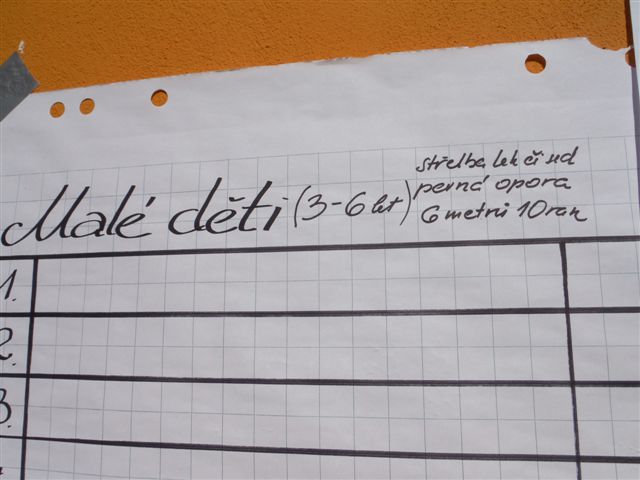 Malé děti (3-6 let)
střelba leh či sed
pevná opora
6 metrů 10 ran
1.
2.
3.